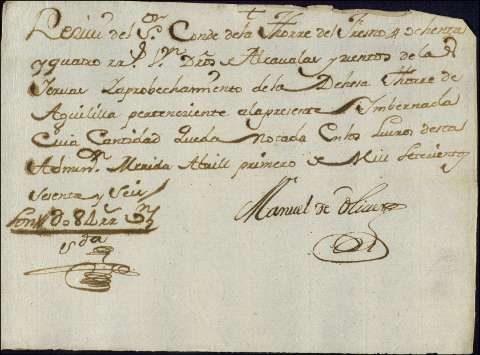 Reciui del Sor. Conde de la Thorre del Fresno ochenta
y quatro rr. Vn. Dros Alcaualas y zientos de la
Yeruas y aprobechamiento de la Dehesa Thorre de
Aguililla perteneziente a la presente Imbernada
Cuia Cantidad queda Notada En los Liuros desta
Admin. Merida Abrill primero de Mill Setecientos
Sesenta y Seis
Manuel de Oliuera
Son 84 rr. Vn